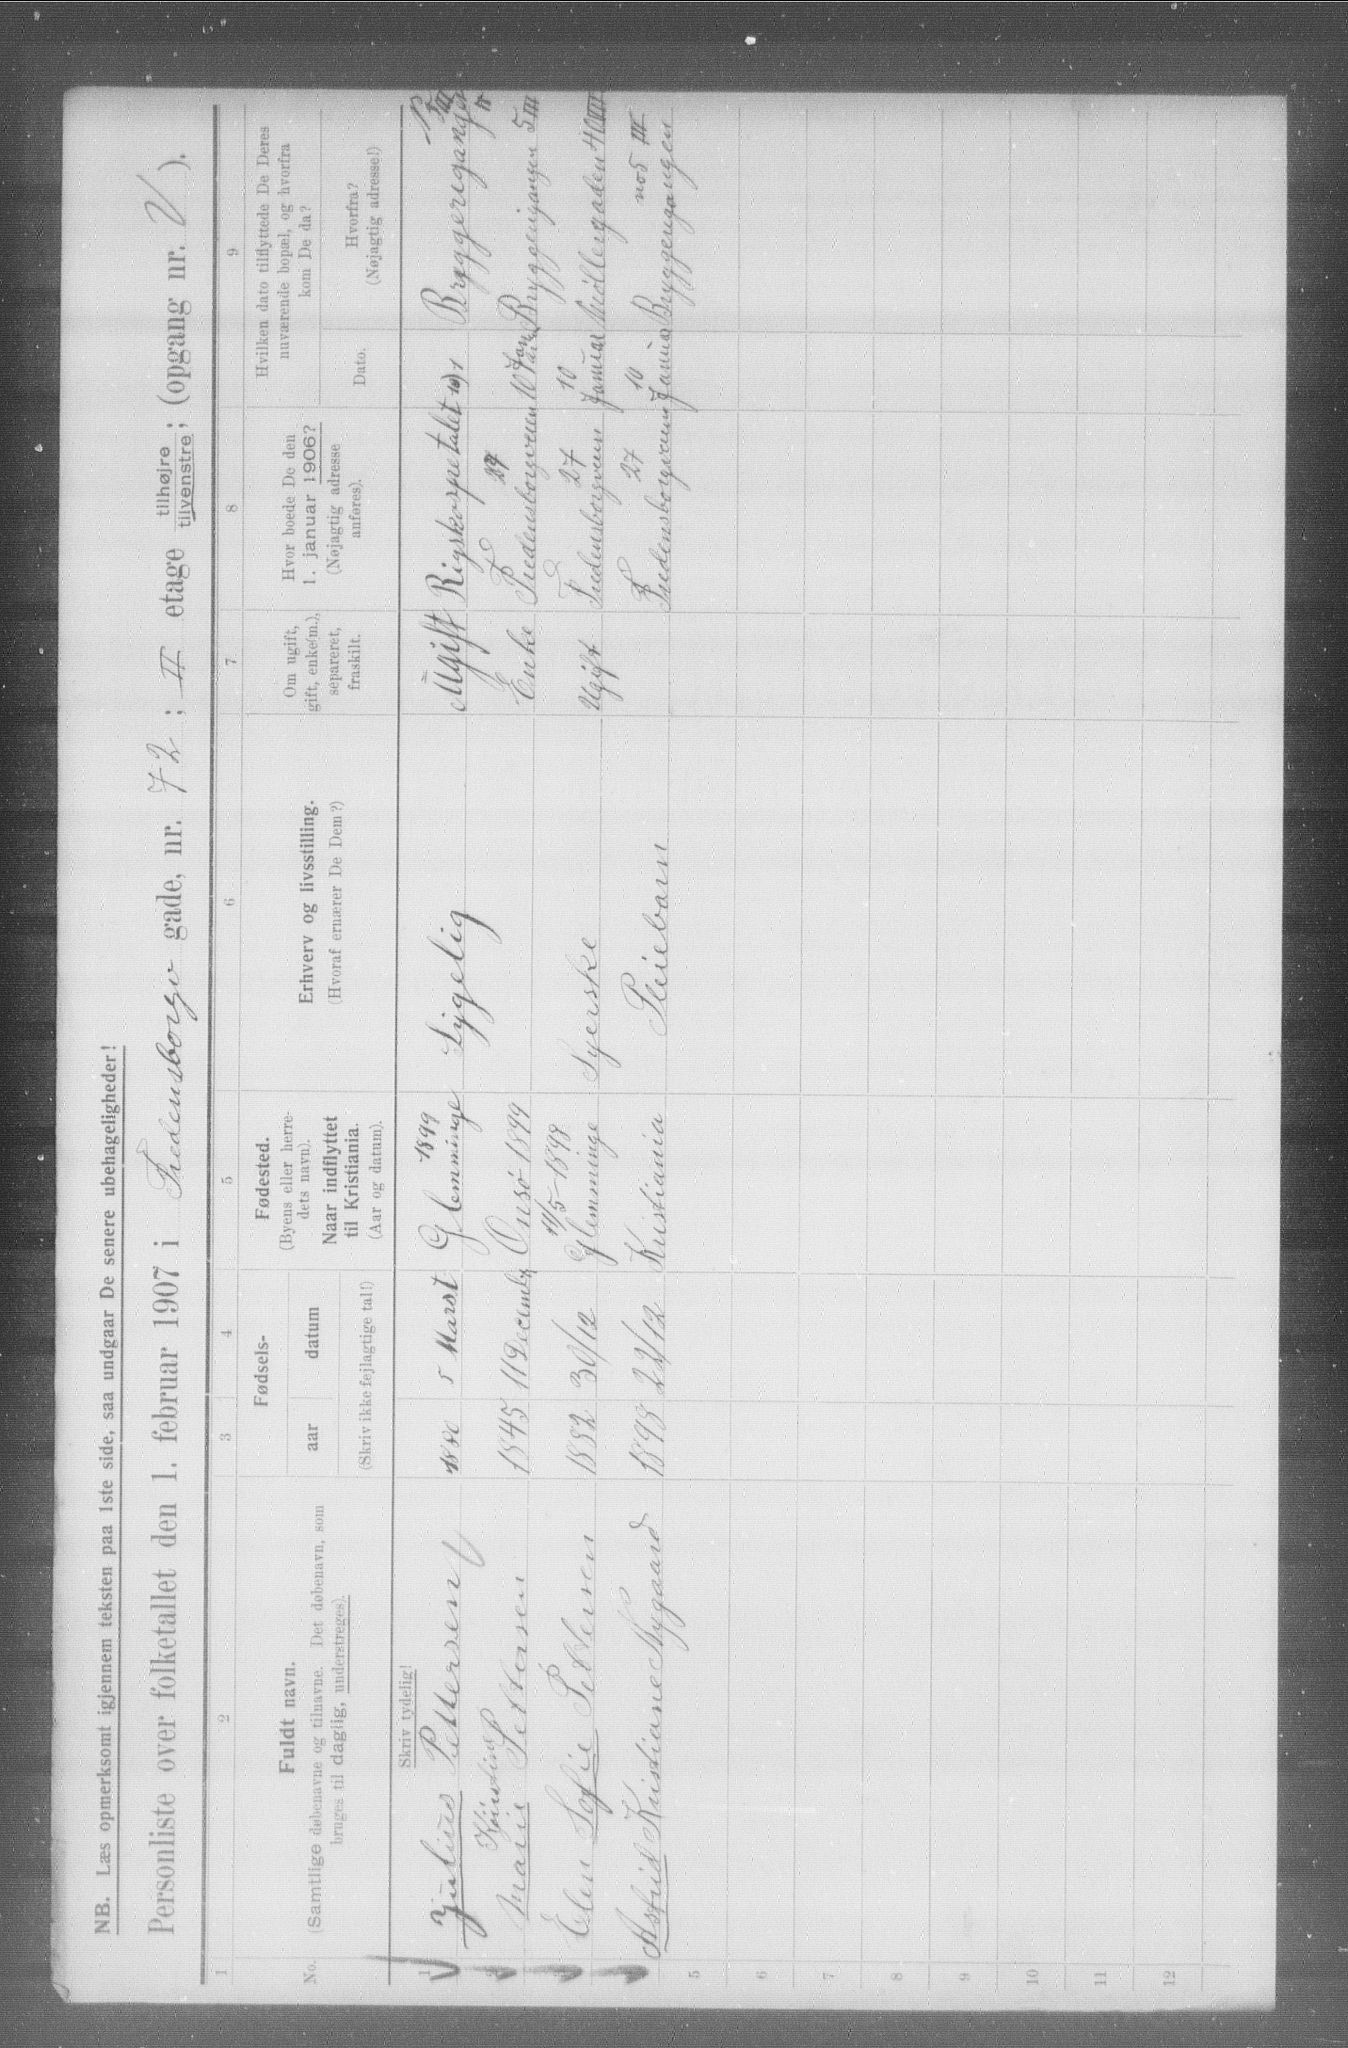 NB. Læs opmerksomt igjennem teksten paa 1ste side, saa undgaar De senere ubehageligheder!
Personliste over folketallet den 1. februar 1907 i Fredensborgv gade, nr. 72; II etage tilhøjre tilvenstre; (opgang nr. V).
1 2 3 4 5 6 7 8 9
No.
Fuldt navn.
(Samtlige døbenavne og tilnavne. Det døbenavn, som
bruges til daglig, understreges).
Fødsels-
aar datum
(Skriv ikke fejlagtige tal!)
Fødested.
(Byens eller herre-
dets navn).
Naar indflyttet
til Kristiania.
(Aar og datum).
Erhverv og livsstilling.
(Hvoraf ernærer De Dem?)
Om ugift,
gift, enke(m.),
separeret,
fraskilt.
Hvor boede De den
1. januar 1906?
(Nøjagtig adresse
anføres).
Hvilken dato tilflyttede De Deres
nuværende bopæl, og hvorfra
kom De da?
Dato.
Hvorfra?
(Nøjagtig adresse!)
Skriv tydelig!
1899
1 Julius Pettersen 1880 5 Marst Glemminge Sygelig Ugift Rigshospetalet 10/1 Bryggerigangen 5 III
Kristine 27
2 Marie Pettersen 1845 11 December Onsø 1899 Enke Fredensborgveien 10 Januar Bryggerigangen 5 III
11/5-1898 27 10
3 Elen Sofie Pettersen 1882 30/12 Glemminge Syerske Ugift Fredensborgveien Januar Møllergaden 40 III
27 10 no5 III
4 Astrid Kristiane Nygaard 1898 22/12 Kristiania Pleiebarn Fredensborgveien Januar Bryggerigangen
5
6
7
8
9
10
11
12